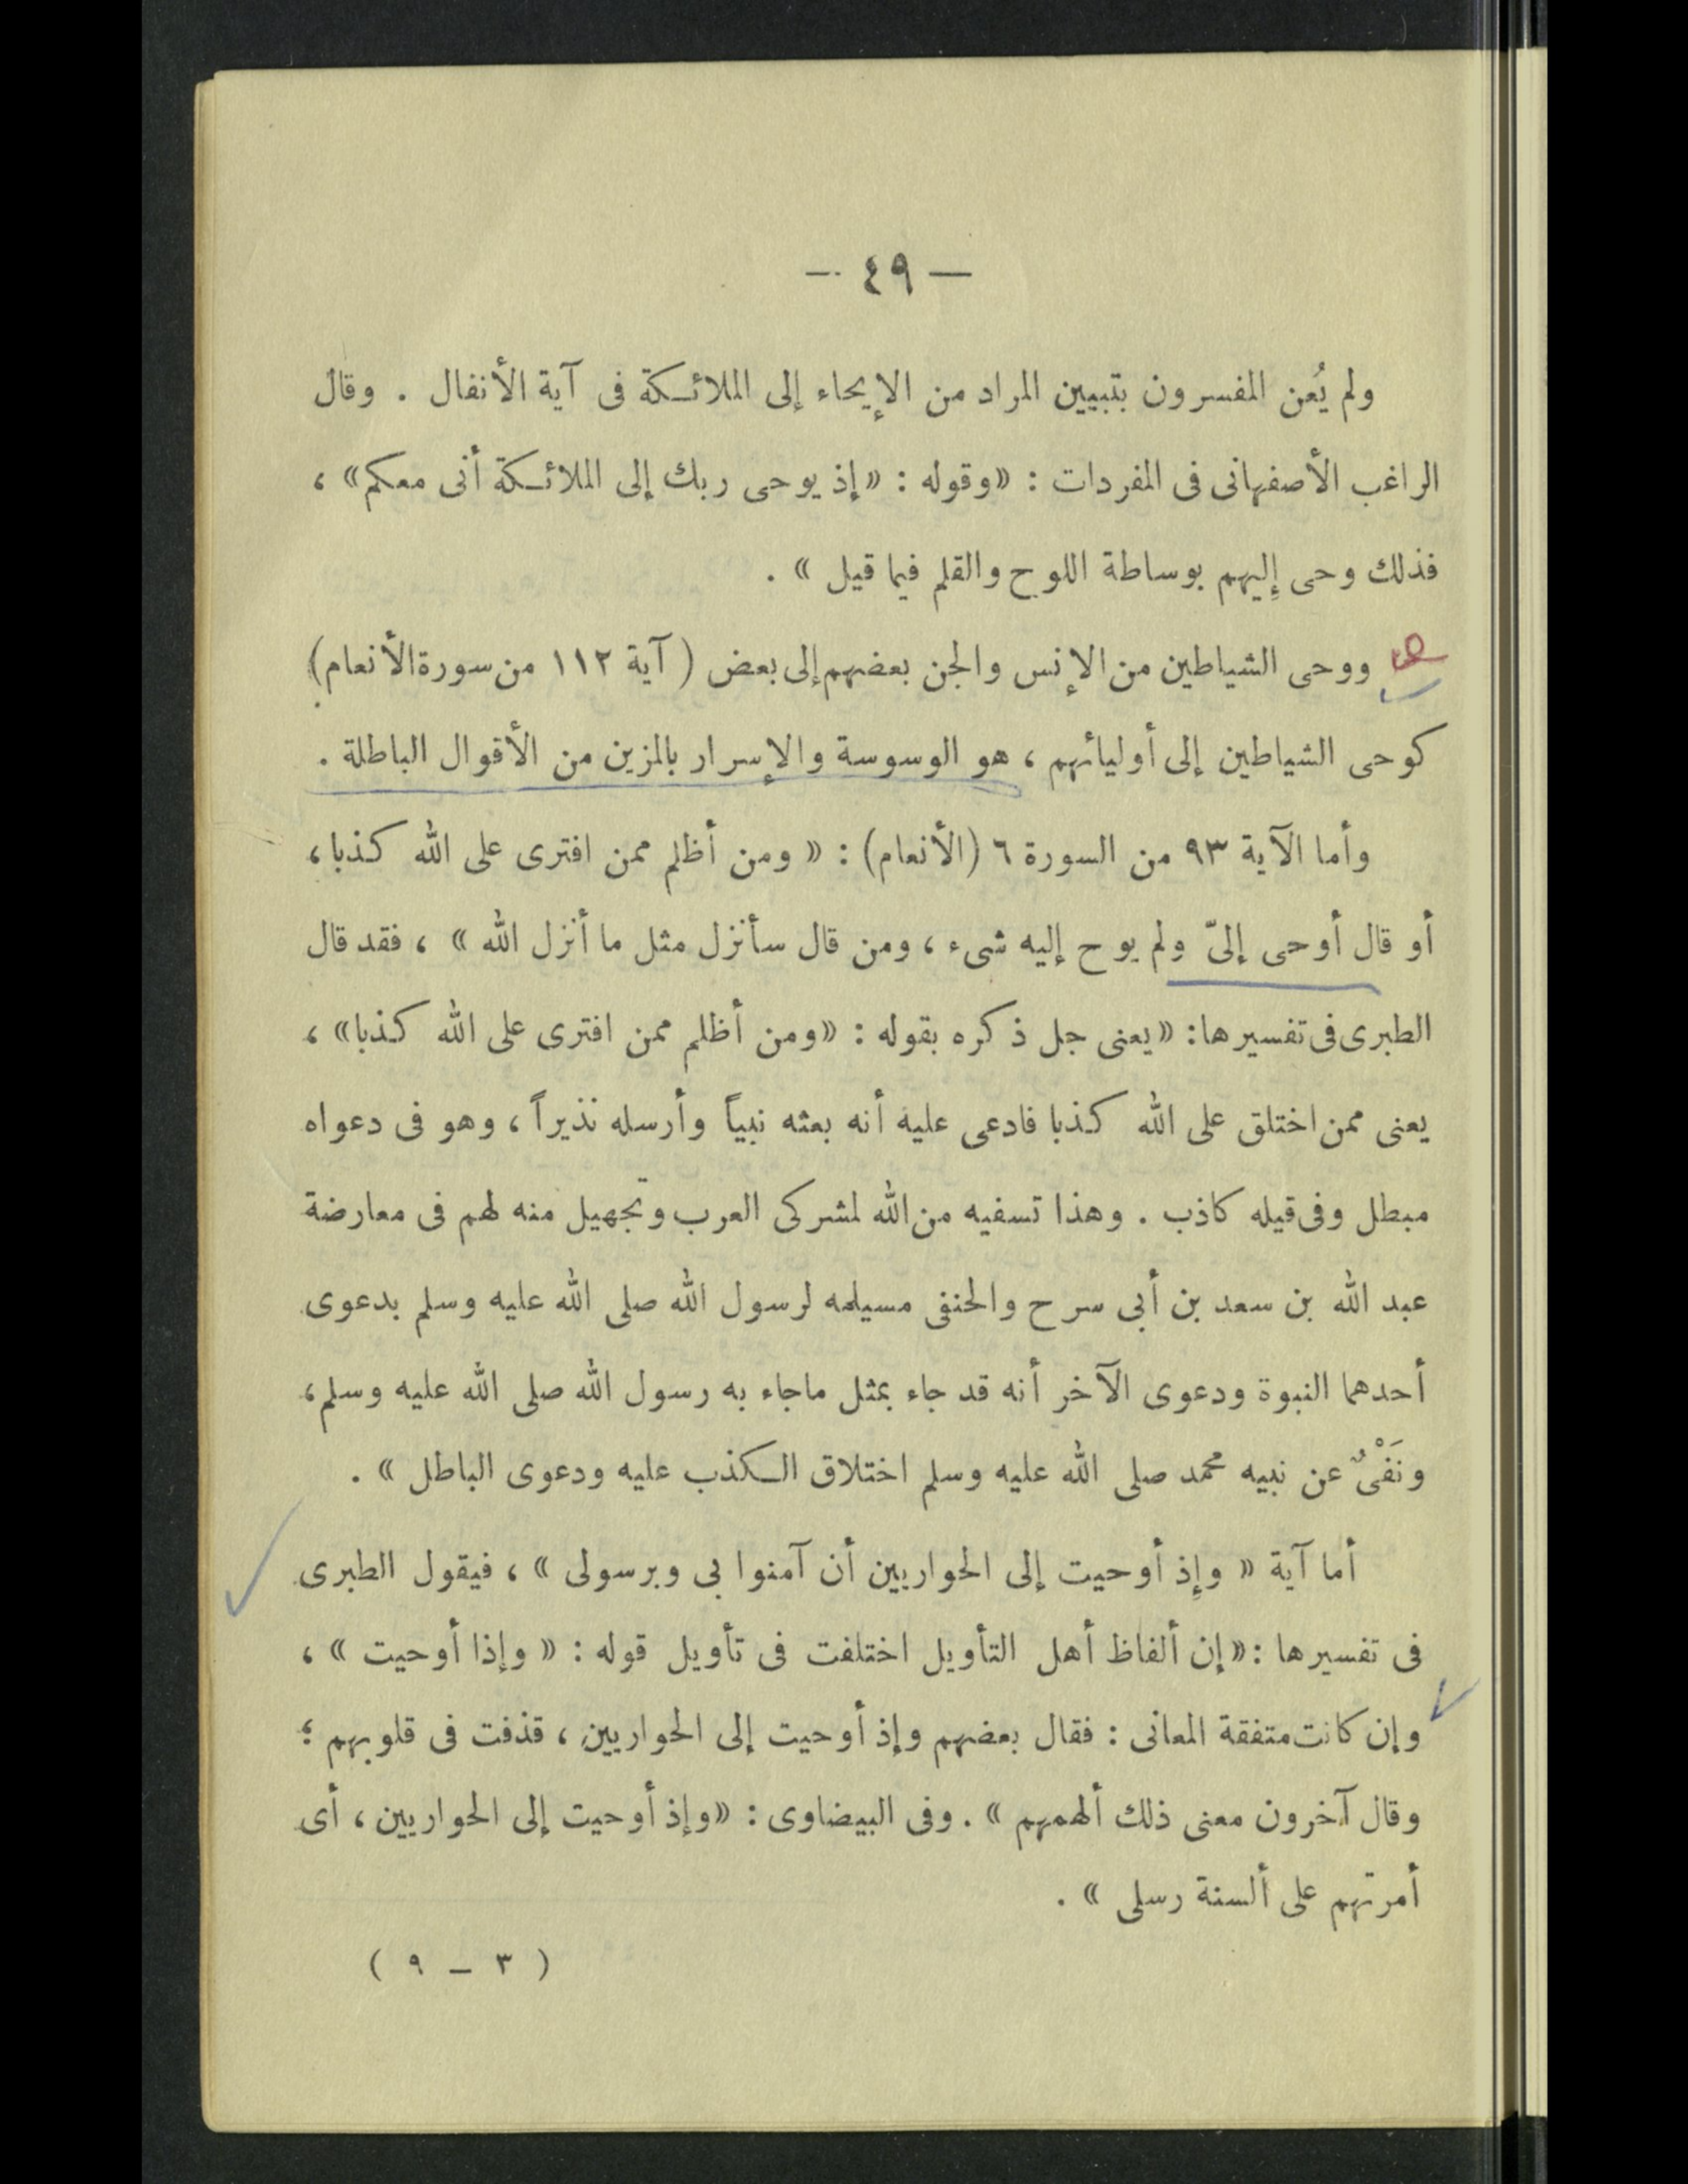 — ٤٩ —
ولم يُعن المفسرون بتبيين المراد من الإيحاء إلى الملائكة فى آية الأنفال . وقال
الراغب الأصفهانى فى المفردات : «وقوله : «إذ يوحى ربك إلى الملائكة أنى معكم» ،
فذلك وحى إليهم بوساطة اللوح والقلم فيما قيل » .
ووحى الشياطين من الإنس والجن بعضهم إلى بعض ( آية ١١٢ من سورة الأنعام)
كوحى الشياطين إلى أوليائهم ، هو الوسوسة والإسرار بالمزين من الأقوال الباطلة .
وأما الآية ٩٣ من السورة ٦ (الأنعام) : « ومن أظلم ممن افترى على الله كذبا ،
أو قال أوحى إلىّ ولم يوح إليه شىء ، ومن قال سأنزل مثل ما أنزل الله » ، فقد قال
الطبرى فى تفسيرها : «يعنى جل ذكره بقوله : «ومن أظلم ممن افترى على الله كذبا» ،
يعنى ممن اختلق على الله كذبا فادعى عليه أنه بعثه نبياً وأرسله نذيراً ، وهو فى دعواه
مبطل وفى قيله كاذب . وهذا تسفيه من الله لمشركى العرب وتجهيل منه لهم فى معارضة
عبد الله بن سعد بن أبى سرح والحنفى مسيلمه لرسول الله صلى الله عليه وسلم بدعوى
أحدهما النبوة ودعوى الآخر أنه قد جاء بمثل ماجاء به رسول الله صلى الله عليه وسلم ،
ونَفْىٌ عن نبيه محمد صلى الله عليه وسلم اختلاق الكذب عليه ودعوى الباطل » .
أما آية « وإِذ أوحيت إلى الحواريين أن آمنوا بى وبرسولى » ، فيقول الطبرى
فى تفسيرها : «إن ألفاظ أهل التأويل اختلفت فى تأويل قوله : « وإذا أوحيت » ،
وإن كانت متفقة المعانى : فقال بعضهم وإذ أوحيت إلى الحواريين ، قذفت فى قلوبهم ؛
وقال آخرون معنى ذلك ألهمهم » . وفى البيضاوى : «وإذ أوحيت إلى الحواريين ، أى
أمرتهم على ألسنة رسلى » .
( ٣ – ٩ )